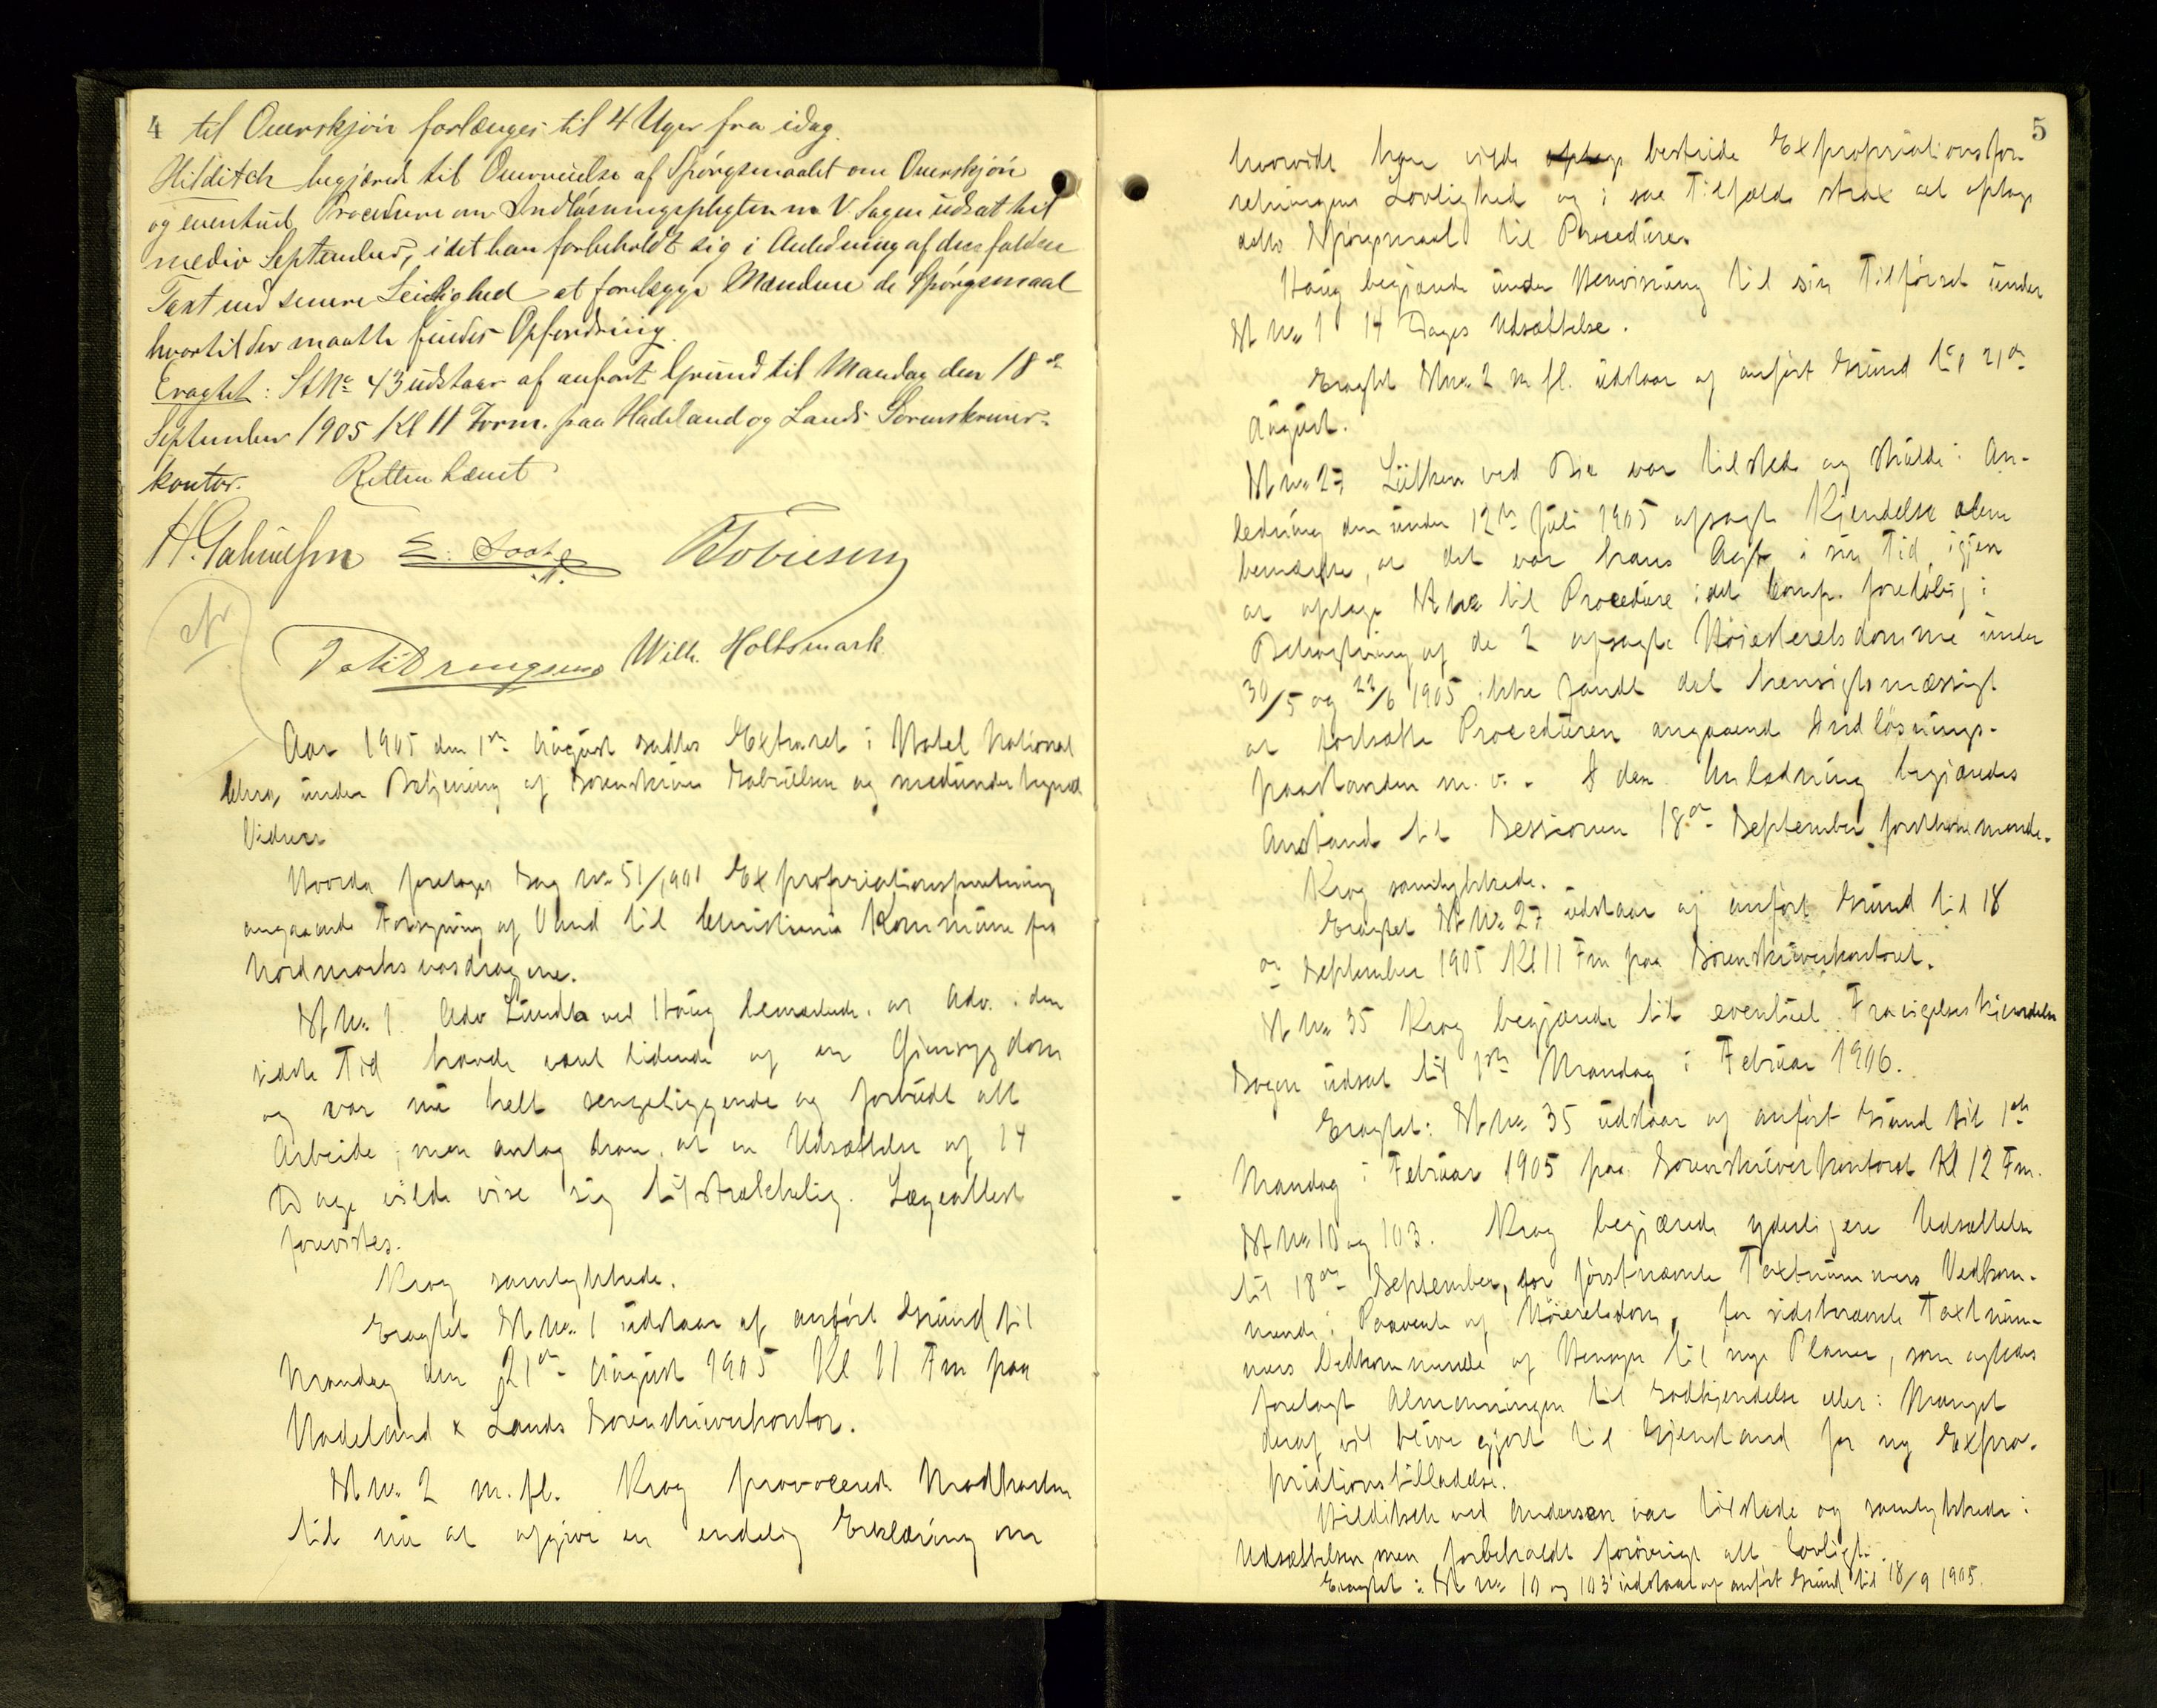 4 til Overskjøn forlænges til 4 Uger fra idag.
Hilditch begjæred til Overveielse af Spørgsmaalet om Overskjøn
og eventuel Procedure om Indløsningspligten m. V. Sagen udsat til
medio September, idet han forbeholdt sig i Anledning af den faldne
Taxt ved senere Leilighed at forelægge Mændene de Spørgsmaal
hvortil der maatte findes Opfordring.
Eragtet: St No 43 udstaar af anført Grund til Mandag den 18de
September 1905 Kl 11 Form. paa Hadeland og Lands Sorenskriver-
kontor. Retten hævet
H. Gabrielsen Tobiesen
Wilh. Holtsmark
Aar 1905 den 1ste August sattes Extraret i Hotel National
Chra under Betjening af Sorenskriver Gabrielsen og medundertegnede
Vidner
Hvorda foretoges Sag No 51/1901 Expropriationsforretning
angaaende Forsyning af Vand til Christiania Kommune fra
Nordmarksvasdragene.
St No 1. Adv Lunde ved Haug bemærkede, at Adv. i den
sidste Tid havde været lidende af en Øiensygdom
og var nu helt sengeliggende og forbudt alt
Arbeide, men antog han, at en Udsættelse af 14
Dage vilde vise sig tilstrækkelig. Lægeattest
forevistes.
Krog samtykkede.
Eragtet St No 1 udstaar af anført Grund til
Mandag den 21de August 1905 Kl 11 Fm paa
Hadeland & Lands Sorenskriverkontor.
St No 2 m. fl. Krog provocerede Modparten
til nu at afgive en endelig Erklæring om
5
hvorvidt han vilde bestride Expropriationsfor-
retningens Lovlighed og i saa Tilfælde strax at optage
dette Spørgsmaal til Procedure.
Haug begjærede under Henvisning til sin Tilførsel under
St No 1 14 Dages Udsættelse.
Eragtet St No 2 m fl. udstaar af anført Grund til 21de
August.
St No 27 Lütken ved Bie var tilstede og i An-
ledning den under 12te Juli 1905 afsagte Kjendelse
bemærke, at det var hans Agt i sin Tid igjen
at optage St No til Procedure idet Comp. foreløbig i
Betragtning af de 2 afsagte Høiesteretsdomme under
30/5 og 22/6 1905 ikke fandt det hensigtsmæssigt
at fortsætte Proceduren angaaende Indløsnings-
paastanden m. v. I den Anledning begjæredes
Anstand til Sessionen 18de September førstkommende.
Krog samtykkede.
Eragtet St No 27 udstaar af anført Grund til 18
de September 1905 Kl 11 Fm paa Sorenskriverkontoret.
St No 35 Krog begjærede til eventuel Fravigelseskjendelse
Sagen udsat til 1ste Mandag i Februar 1906.
Eragtet: St No 35 udstaar af anført Grund til 1ste
Mandag i Februar 1905 paa Sorenskriverkontoret Kl 12 Fm.
St No 10 og 103. Krog begjærede yderligere Udsættelse
til 18de September, for førstnævnte Taxtnummers Vedkom-
mende i Paavente af Høieretsdom, for sidstnævnte Taxtnum-
mers Vedkommende af Hensyn til nye Planer, som agtedes
forelagt Almenningen til Godkjendelse eller i Mangel
deraf vil blive gjort til Gjenstand for ny Expro-
priationstilladelse.
Hilditch ved Andersen var tilstede og samtykkede i
Udsættelsen, men forbeholdt forøvrigt alt lovligt.
Eragtet: St No 10 og 103 udstaar af anført Grund til 18/9 1905.